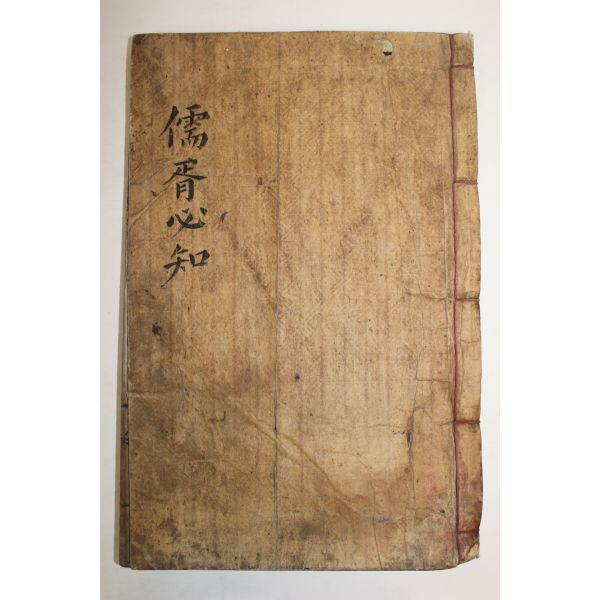 儒胥必知